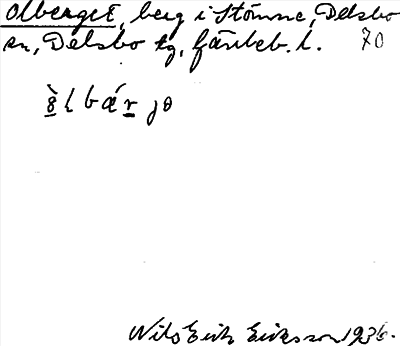 Olberget, berg i Stömne, Delsbo
sn, Delsbo tg, Gävleb. l. 70
Nils Erik Eriksson 1936.